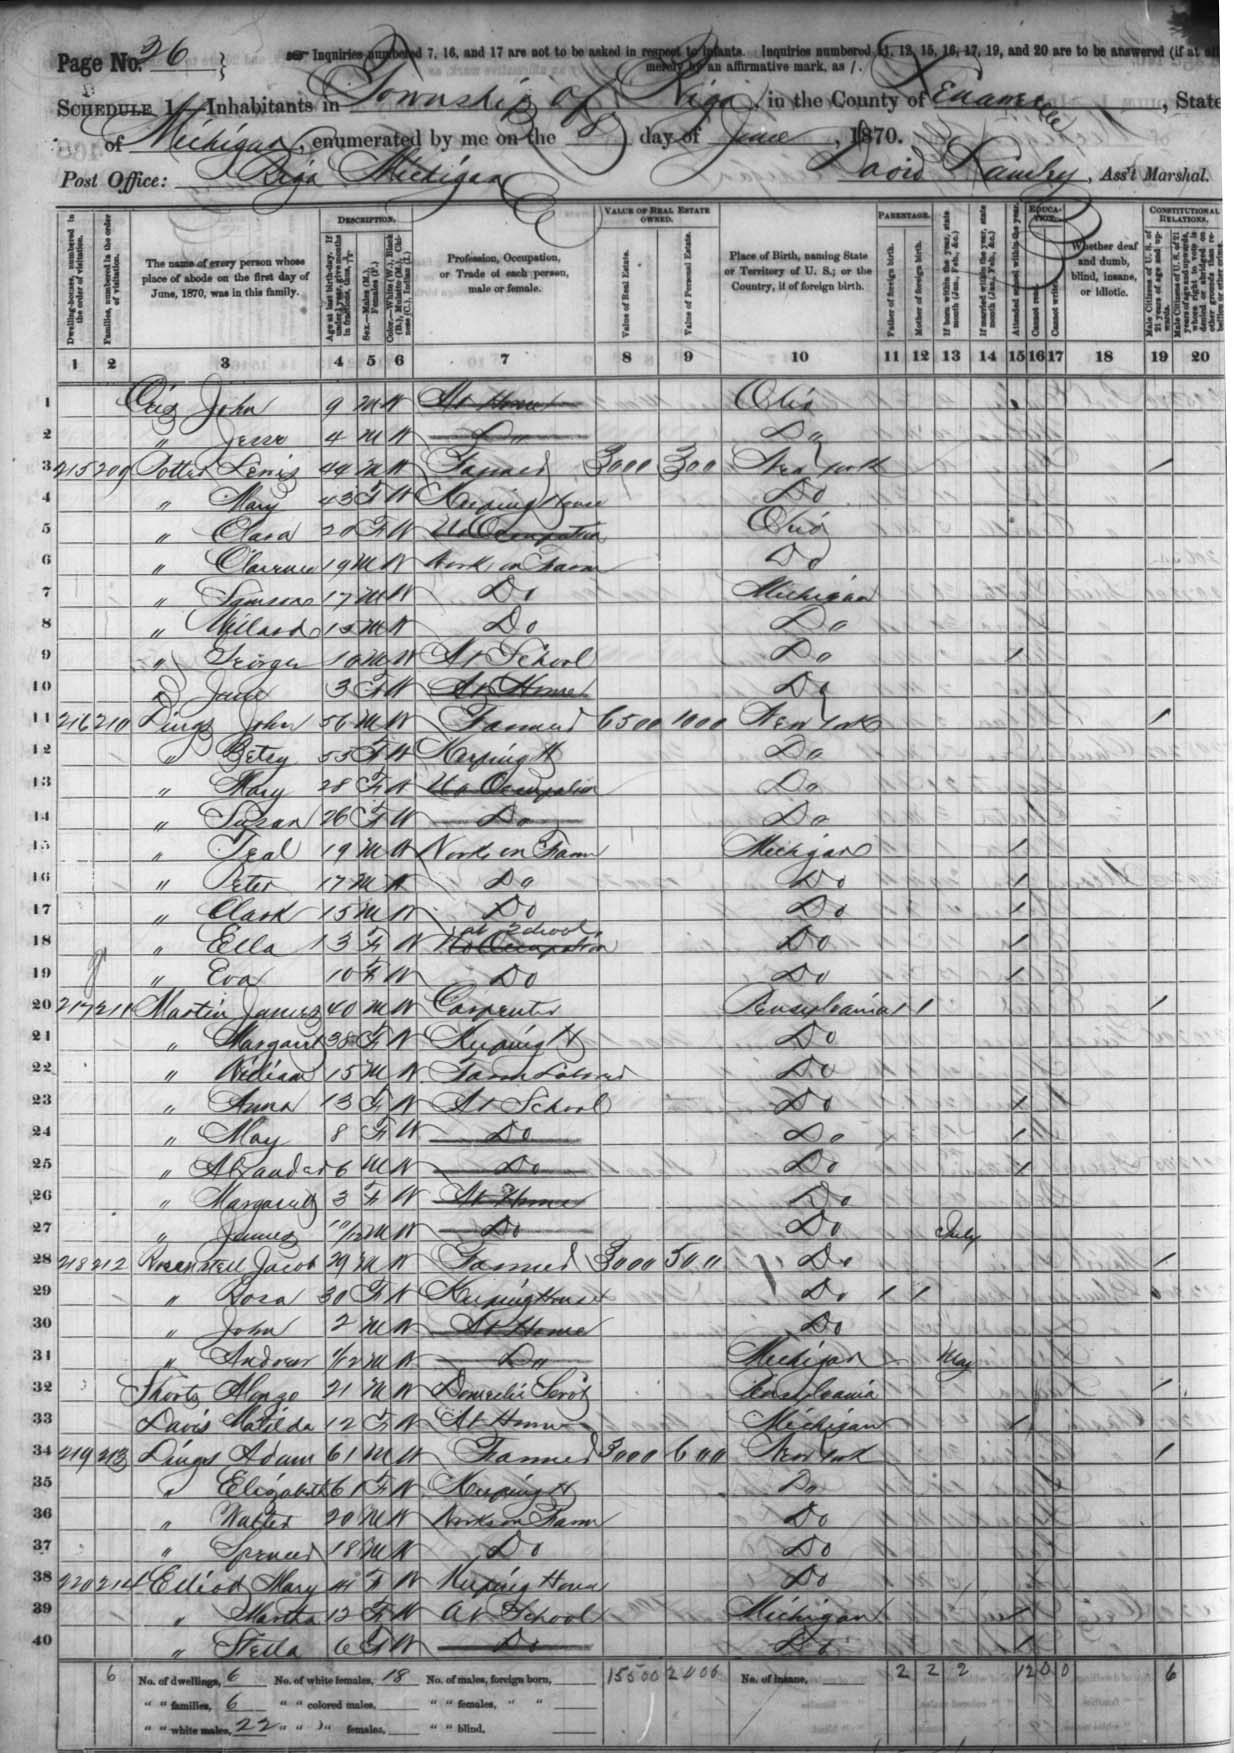 Page No. 26
Inquiries numbered 7, 16, and 17 are not to be asked in respect to infants. Inquiries numbered 11, 12, 15, 16, 17, 19, and 20 are to be answered (if at all)
merely by an affirmative mark, as /.
SCHEDULE 1.—Inhabitants in Township of Riga, in the County of Lenawee, State
of Michigan, enumerated by me on the 8 day of June, 1870.
Post Office: Riga Michigan David, Ass't Marshal.
DESCRIPTION. VALUE OF REAL ESTATE OWNED. PARENTAGE. EDUCATION. CONSTITUTIONAL RELATIONS.
Dwelling-houses, numbered in the order of visitation.
Families, numbered in the order of visitation.
The name of every person whose place of abode on the first day of June, 1870, was in this family.
Profession, Occupation, or Trade of each person, male or female.
Value of Real Estate.
Value of Personal Estate.
Place of Birth, naming State or Territory of U. S.; or the Country, if of foreign birth.
Father of foreign birth.
Mother of foreign birth.
If born within the year, state month (Jan., Feb., &c.)
If married within the year, state month (Jan., Feb., &c.)
Attended school within the year.
Cannot read.
Cannot write.
Whether deaf and dumb, blind, insane, or idiotic.
1 2 3 4 5 6 7 8 9 10 11 12 13 14 15 16 17 18 19 20
1 John 9 M W At Home Ohio
2 " Jesse 4 M W Do Do
3 215 209 Potter Lewis 44 M W Farmer 3000 300 New York /
4 " Mary 43 F W Keeping House Do
5 " Clara 20 F W No Occupation Ohio
6 " Clarence 19 M W Works on Farm Do
7 " 17 M W Do Michigan
8 " Millard 15 M W Do Do
9 " George 10 M W At School Do /
10 " Jane 3 F W At Home Do
11 216 210 Dings John 56 M W Farmer 6500 1000 New York /
12 " Betsy 55 F W Keeping H Do
13 " Mary 28 F W No Occupation Do
14 " Susan 26 F W Do Do
15 " Teal 19 M W Works on Farm Michigan /
16 " Peter 17 M W Do Do /
17 " Clark 15 M W Do Do /
18 " Ella 13 F W at School No Occupation Do /
19 " Eva 10 F W Do Do /
20 217 211 Martin James 40 M W Carpenter Pensylvania / / /
21 " Margaret 38 F W Keeping H Do
22 " 15 M W Farm Laborer Do
23 " Anna 13 F W At School Do /
24 " May 8 F W Do Do /
25 " 6 M W Do Do /
26 " Margarett 3 F W At Home Do
27 " James 10/12 M W Do Do July
28 218 212 Jacob 29 M W Farmer 3000 500 Do /
29 " Rosa 30 F W Keeping House Do / /
30 " John 2 M W At Home Do
31 " Andrew 1/12 M W Do Michigan May
32 Alonzo 21 M W Domestic Servt Pensylvania /
33 Davis Matilda 12 F W At Home Michigan /
34 219 213 Dings Adam 61 M W Farmer 3000 600 New York /
35 " Elizabeth 61 F W Keeping H Do
36 " Walter 20 M W Works on Farm Do
37 " Spencer 18 M W Do Do
38 220 214 Elliod Mary 41 F W Keeping House Do
39 " Martha 12 F W At School Michigan /
40 " Stella 6 F W Do Do /
6 No. of dwellings, 6 No. of white females, 18 No. of males, foreign born, 15500 2400 No. of insane, 2 2 2 12 0 0 6
" " families, 6 " " colored males, " " females, " "
" " white males, 22 " " " females, " " blind,